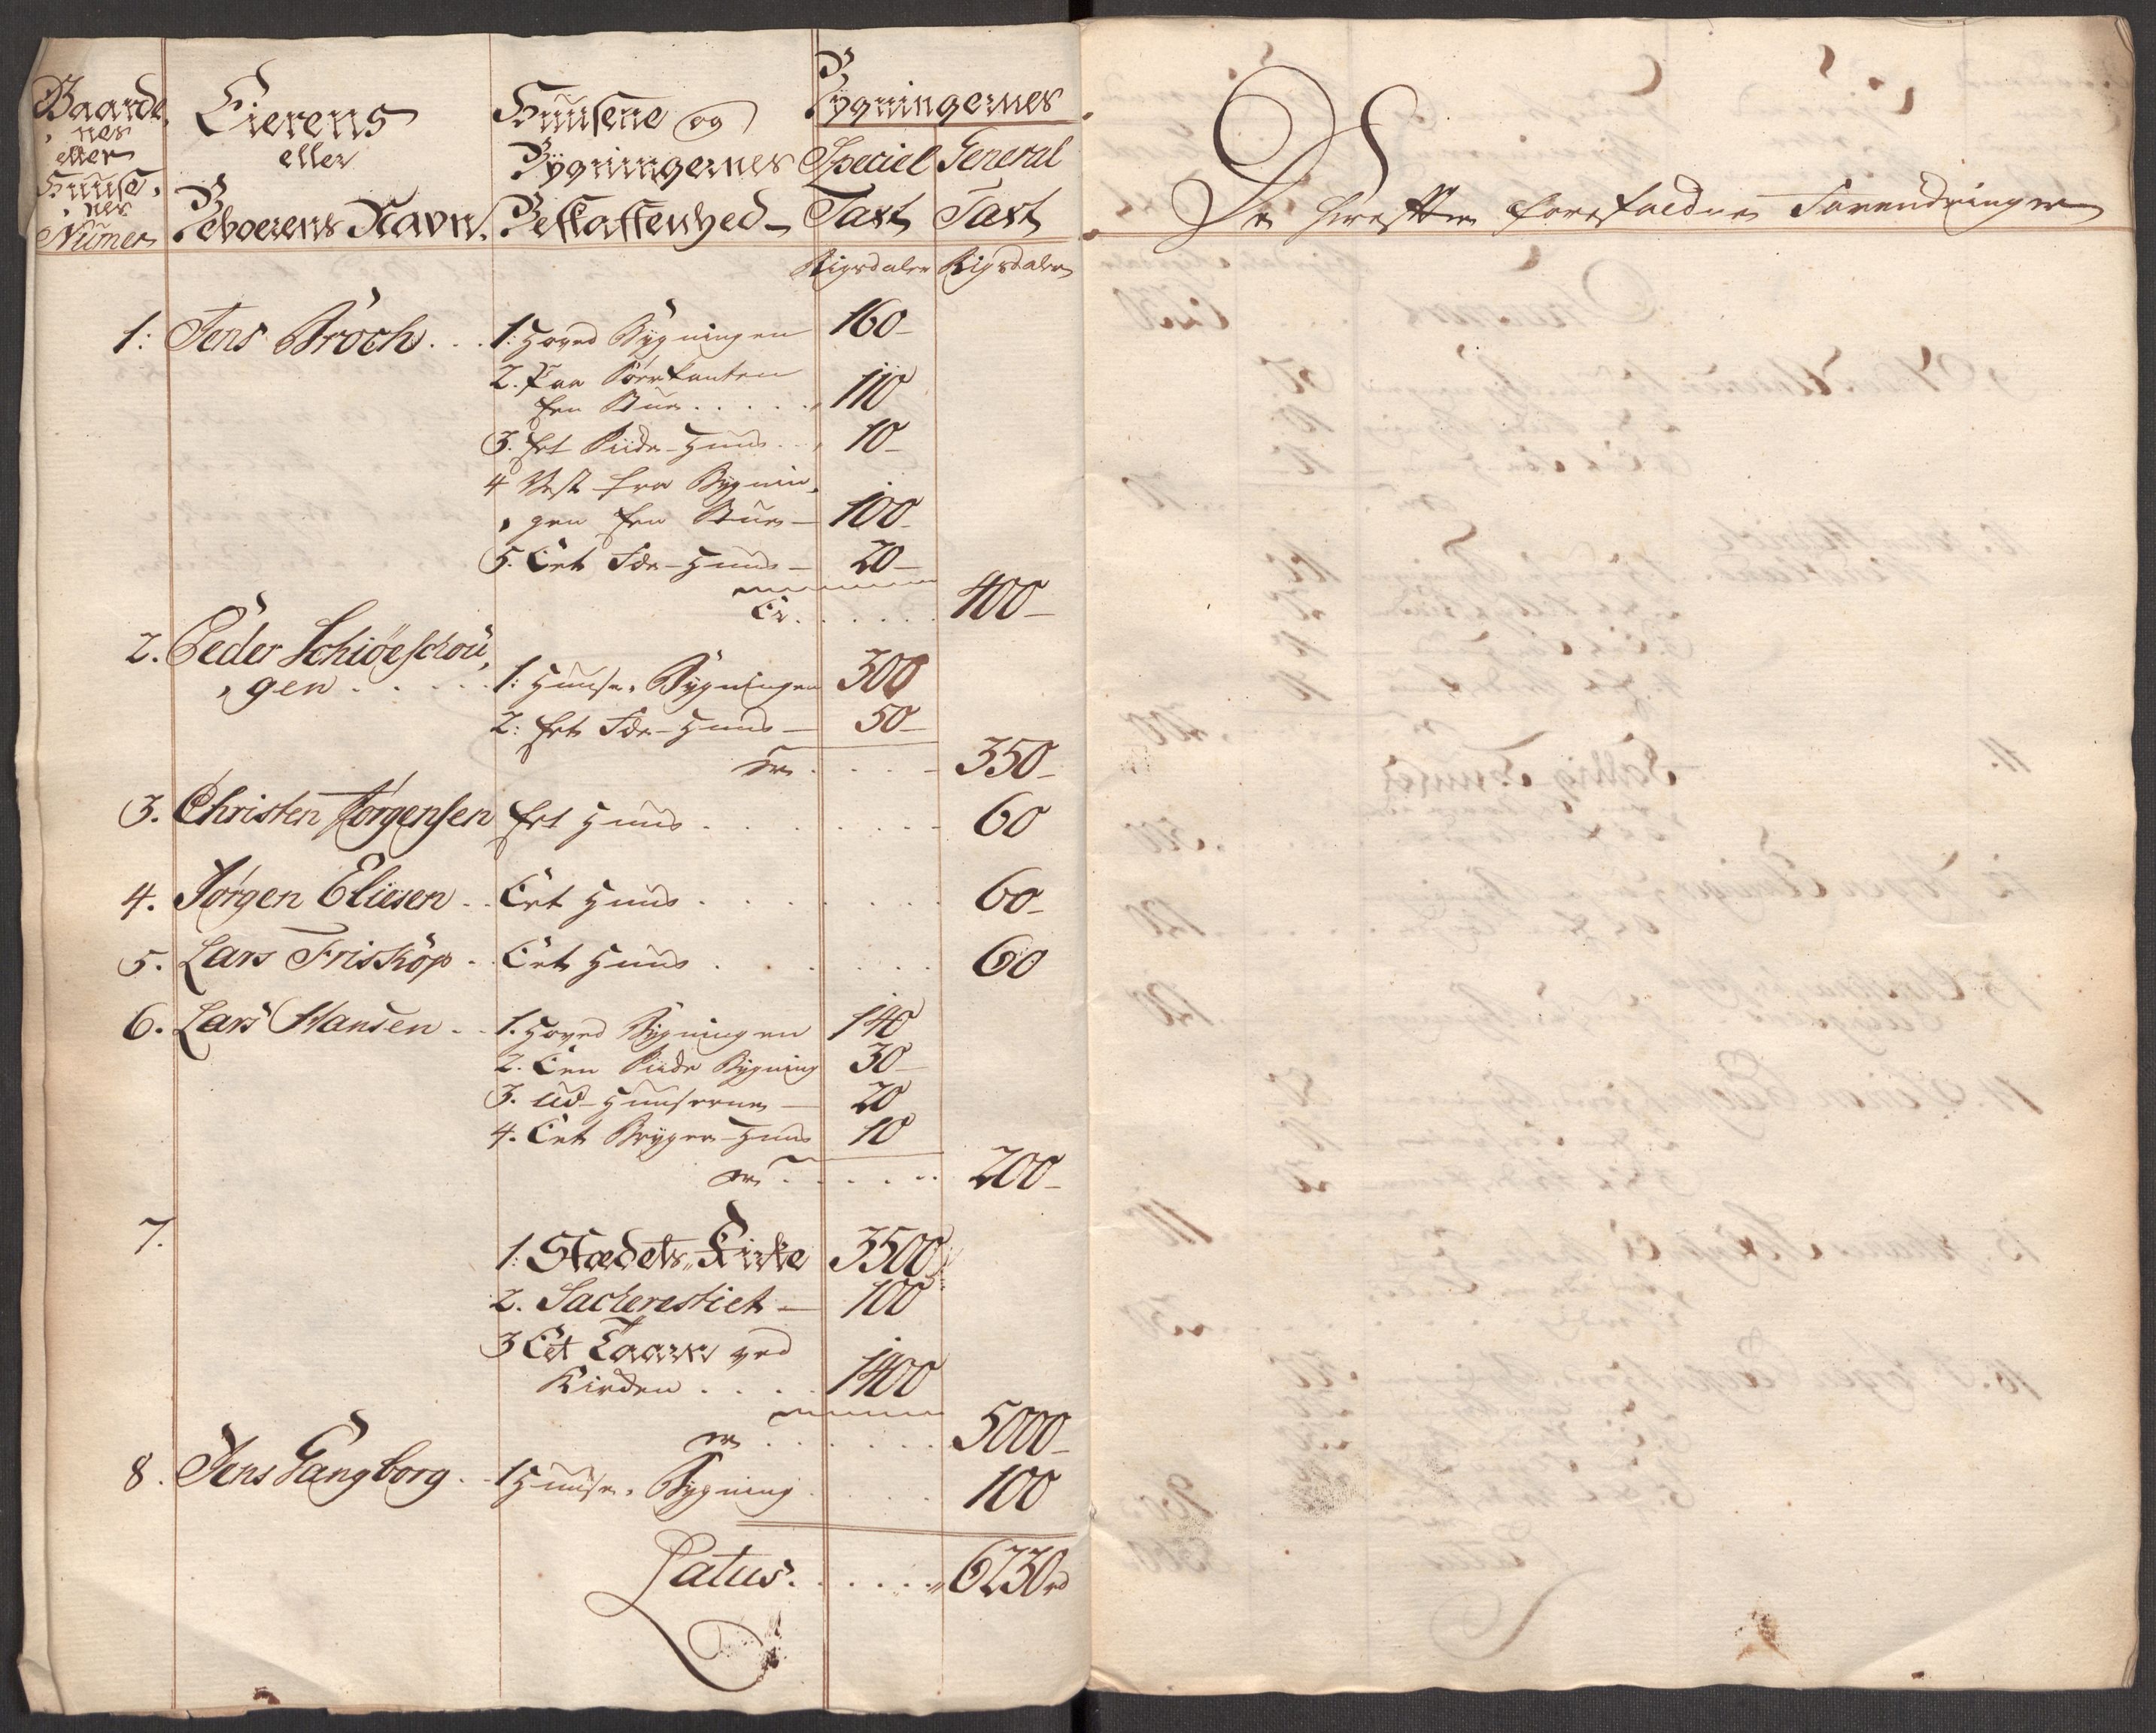 Gaarde,
,nes
eller
Huuse,
,nes
Numer
Eierens
eller
Beboerens Navn.
Huusene og
Bygningernes
Beskaffenhed
Bygningernes
Speciel General
Taxt Taxt
Rigsdaler Rigsdaler
1: Jens Broch . . . 1: Hoved Bygningen 160
2. Paa Nørrkanten
een Stue . . . . . 110
3. Eet Bude-Huus . . 10
4 Vest fra Bygnin,
,gen een Stue 100
5. Eet Øde-Huus 20
Er . . . . . 400
2. Peder Schiøeschou,
,gen . . . . . 1: Huuse, Bygningen 300
2: Eet Øde-Huus 50
Er . . . . 350
3. Christen Jørgensen Eet Huus . . . . . . . 60
4. Jørgen Eliesen . . Eet Huus . . . . . . . 60
5. Lars Friskop . . Eet Huus . . . . . . 60
6. Lars Hansen . . 1. Hoved Bygningen 140
2. Een Bude Bygning 30
3. Ud-Huuserne 20
4. Eet Brygger-Huus 10
er . . . . . 200
7. 1: Stædets Kirke 3500
2. Sacherestiet 100
3 Eet Taarn ved
Kirken . . . . 1400
er . . . . . . 5000
8. Jens Langborg . . 1 Huuse, Bygning . . . . 100
Latus . . . . . . 6230 rd
De herefter forefaldne Forandringer